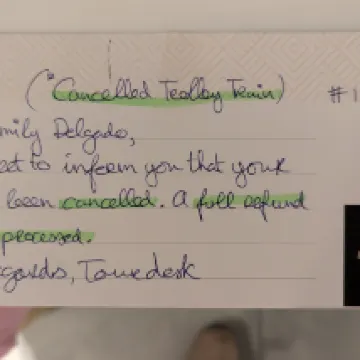 ("Cancelled Trolley Train) #1
mily Delgado,
et to inform you that your
been cancelled. A full refund
processed.
egards, Tourdesk